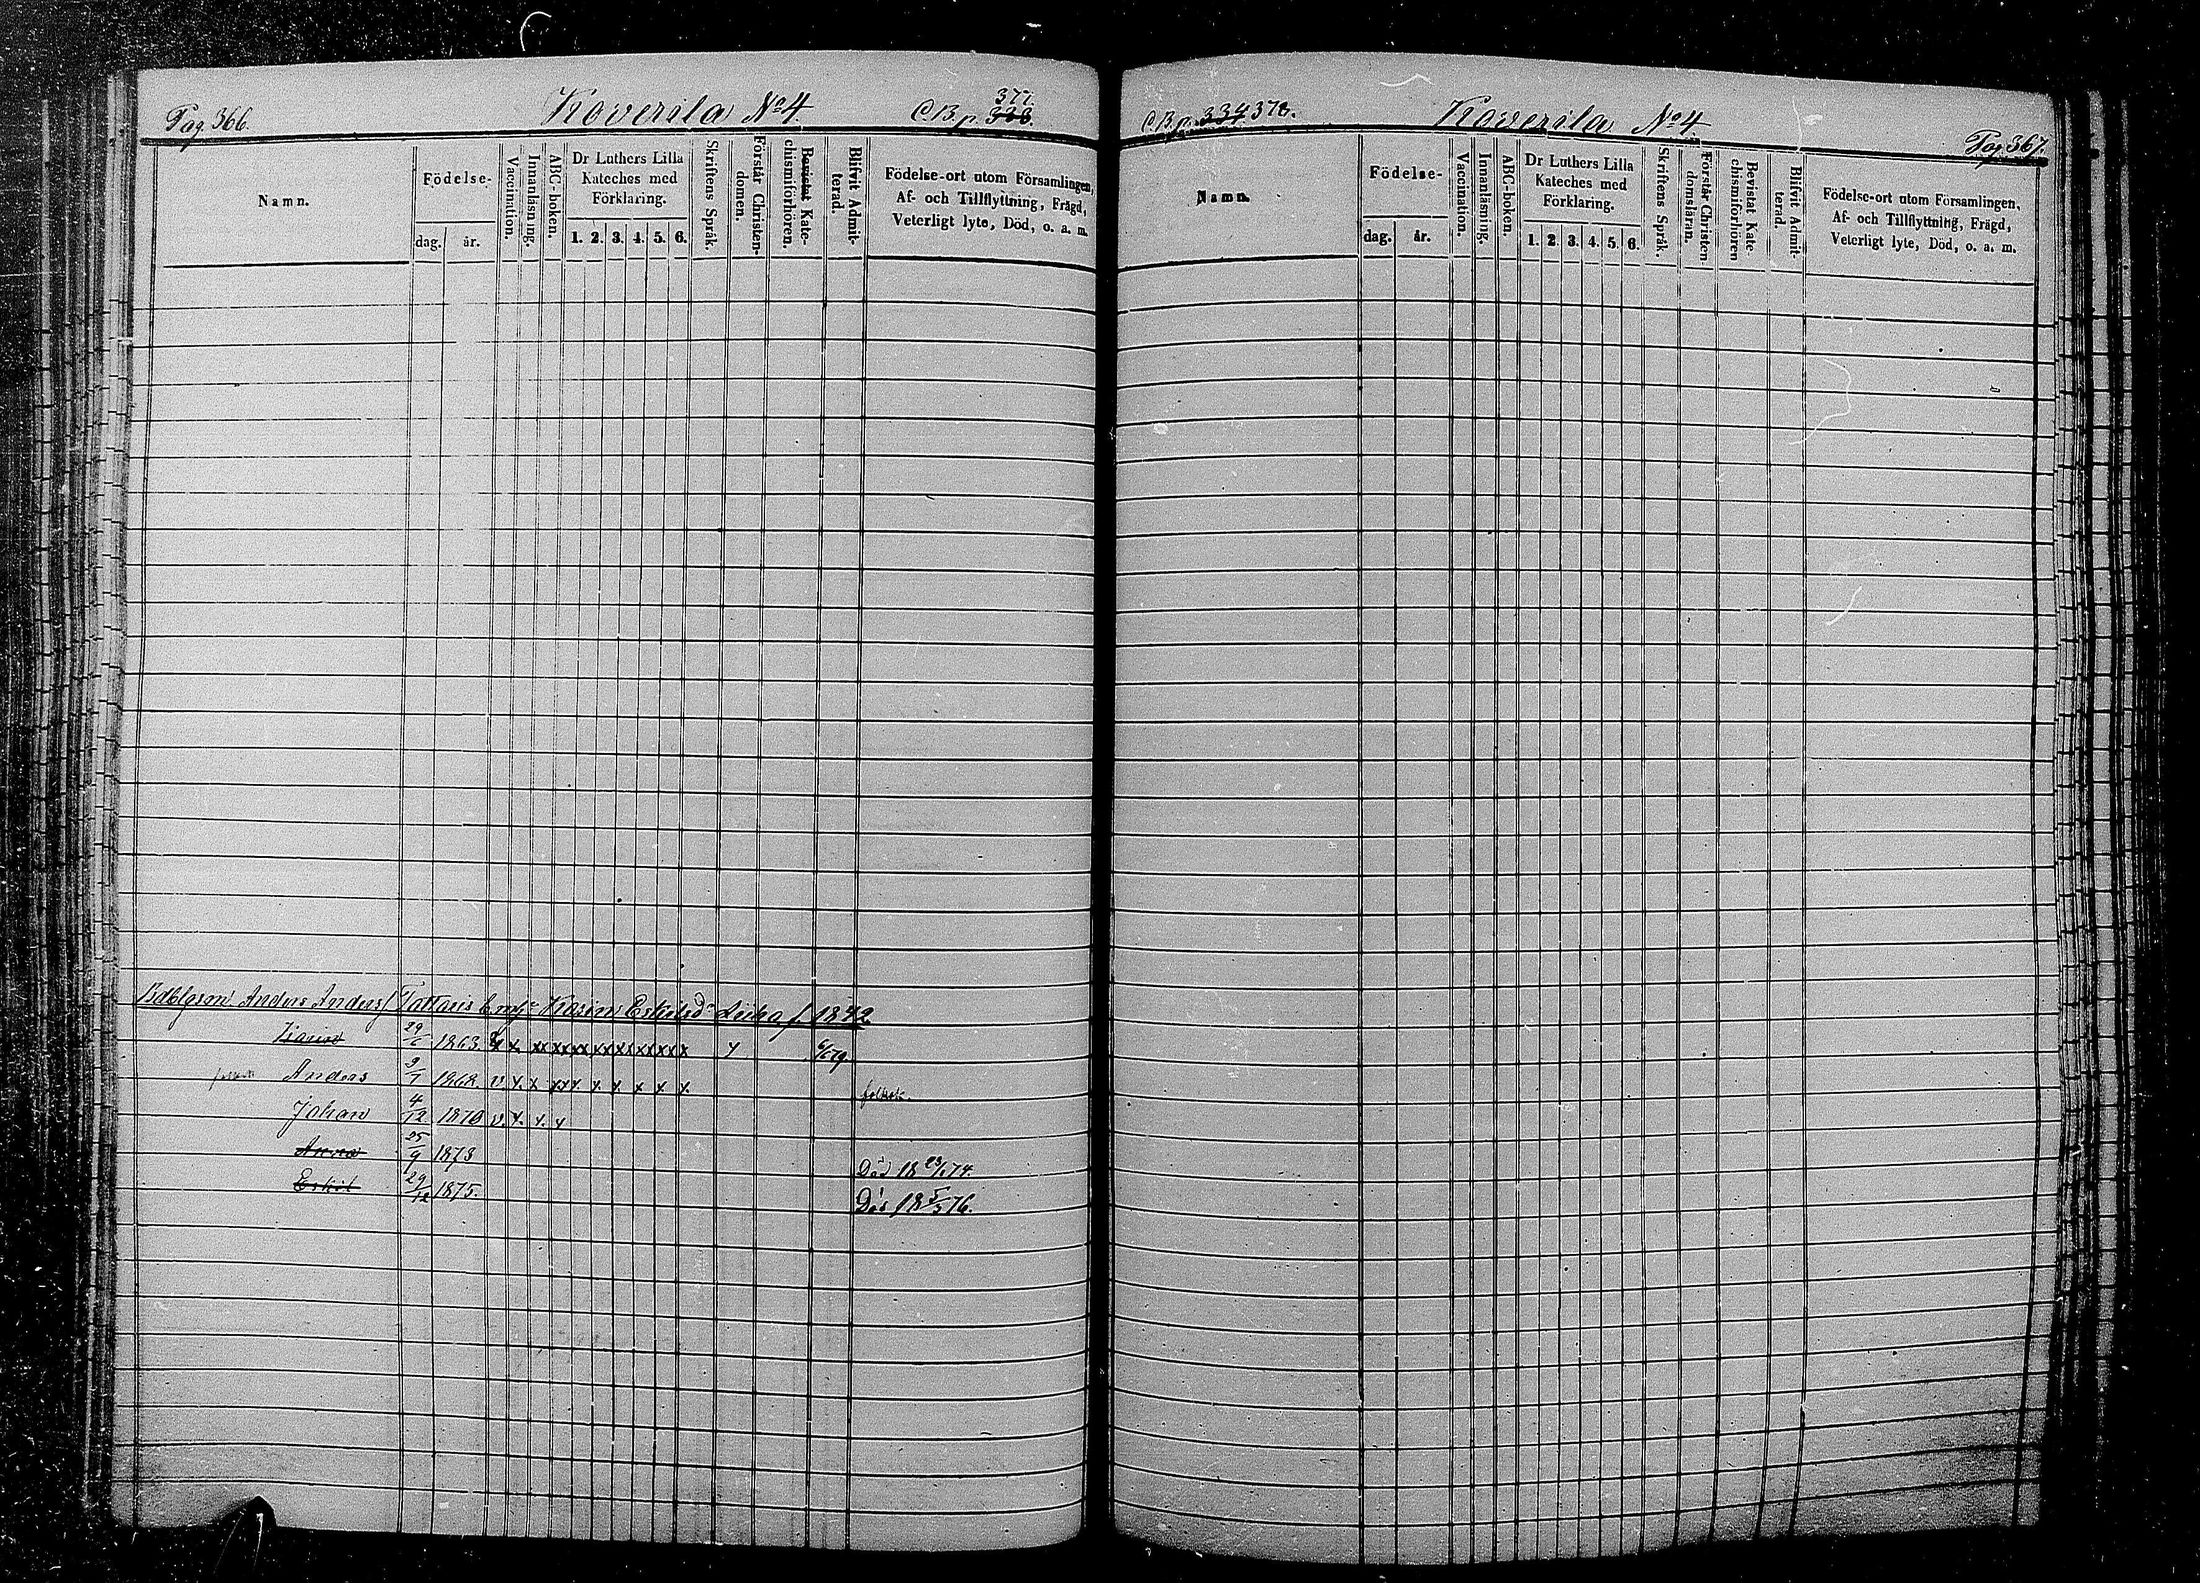 Pag. 366. Koverila No 4 C.B. p. 338. 377.
Namn.
Födelse-
dag. år.
Vaccination.
Innanläsning.
ABC-boken.
Dr Luthers Lilla Kateches med Förklaring.
1. 2. 3. 4. 5. 6.
Skriftens Språk.
Förstår Christendomen.
Bevistat Katechismiförhören.
Blifvit Admitterad.
Födelse-ort utom Församlingen,
Af- och Tillflyttning, Frägd,
Veterligt lyte, Död, o. a. m.
Anders Anders Karin f 1842
29/6 1863. x x xx xxx xx xx xx xx x y
Anders 1868. v. x. x xxx. x. x. x x x.
Johan 4/12 1870 v. x. x. x
Anna 25/9 1873 Död 18 /74.
Eskil 29/12 1875. Död 18 5/3 76.
C.B. p. 334 378. Koverila No 4 Pag. 367.
Namn.
Födelse-
dag. år.
Vaccination.
Innanläsning.
ABC-boken.
Dr Luthers Lilla
Kateches med
Förklaring.
1. 2. 3. 4. 5. 6.
Skriftens Språk.
Förstår Christendomsläran.
Bevistat Katechismiförhören
Blifvit Admitterad.
Födelse-ort utom Församlingen,
Af- och Tillflyttning, Frägd,
Veterligt lyte, Död, o. a. m.